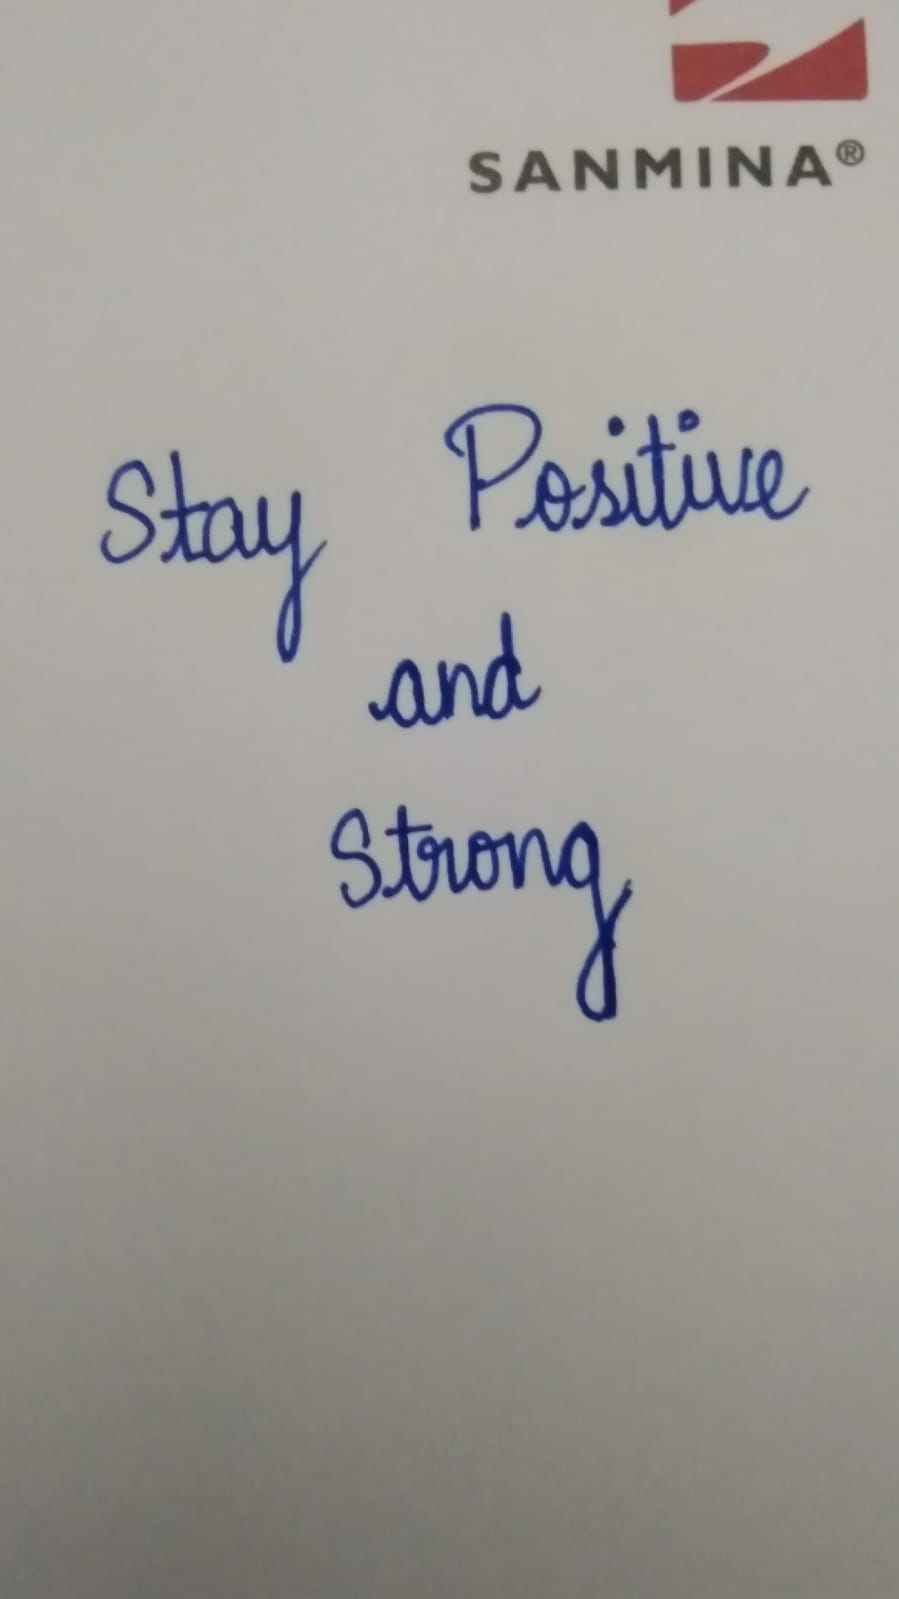 SANMINA®
Stay Positive
and
Strong